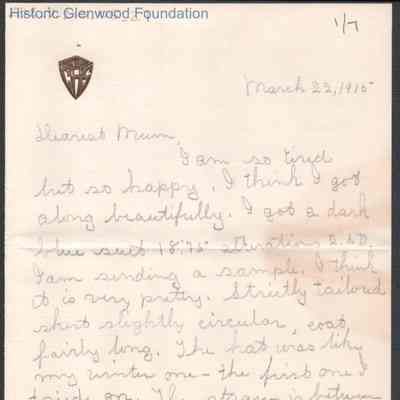 Historic Glenwood Foundation
1/7
March 22, 1915
Dearest Mum,
I am so tired
but so happy. I think I got
along beautifully. I got a dark
blue suit 18.75 alterations 2.50.
I am sending a sample. I think
it is very pretty. Strictly tailored
skirt slightly circular, coat
fairly long. The hat was like
my winter one - the first one I
tried on. The straw is between